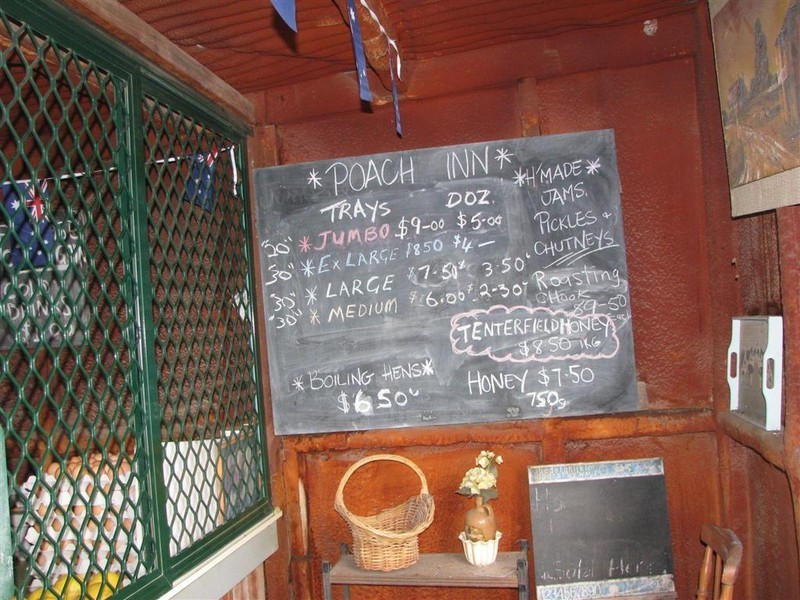 * POACH INN *
TRAYS DOZ.
"20" * JUMBO $9-00 $5.00
"30" * Ex LARGE 850 $4 —
"30" * LARGE $7.50 3.50
"30" * MEDIUM $6.00 2-30
* BOILING HENS *
$6.50
* H'MADE *
JAMS.
PICKLES &
CHUTNEYS
Roasting
Chook
$9-50
TENTERFIELD HONEY
$8.50 1KG
HONEY $7.50
750g